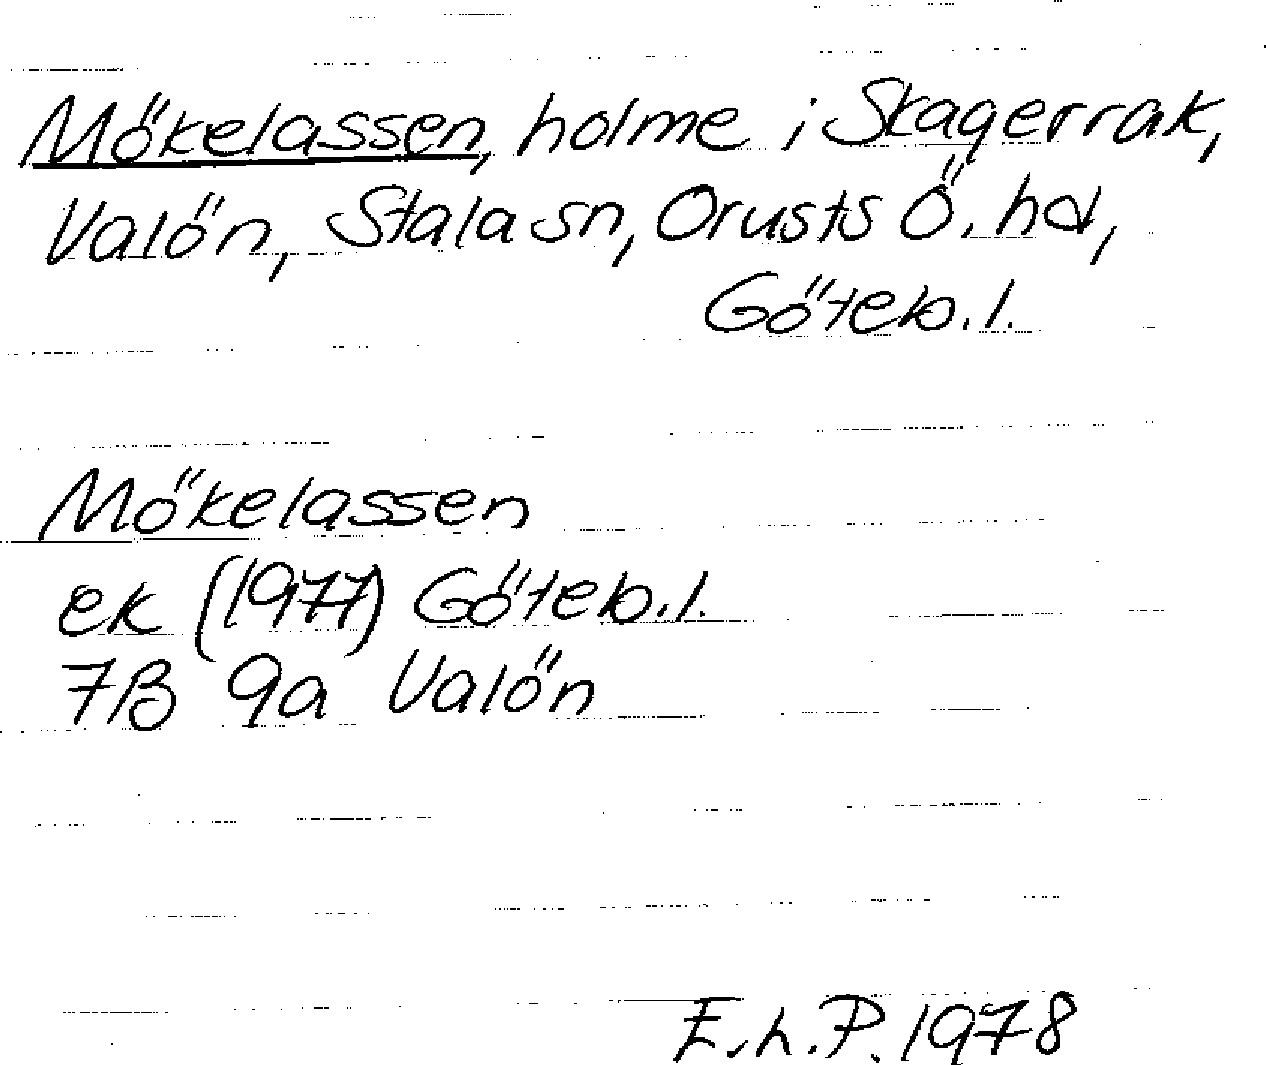 Mökelassen, holme i Skagerrak,
Valön, Stala sn, Orusts Ö. hd,
Göteb. l.
Mökelassen
ek (1977) Göteb. l.
7B 9a Valön
E.h.P. 1978